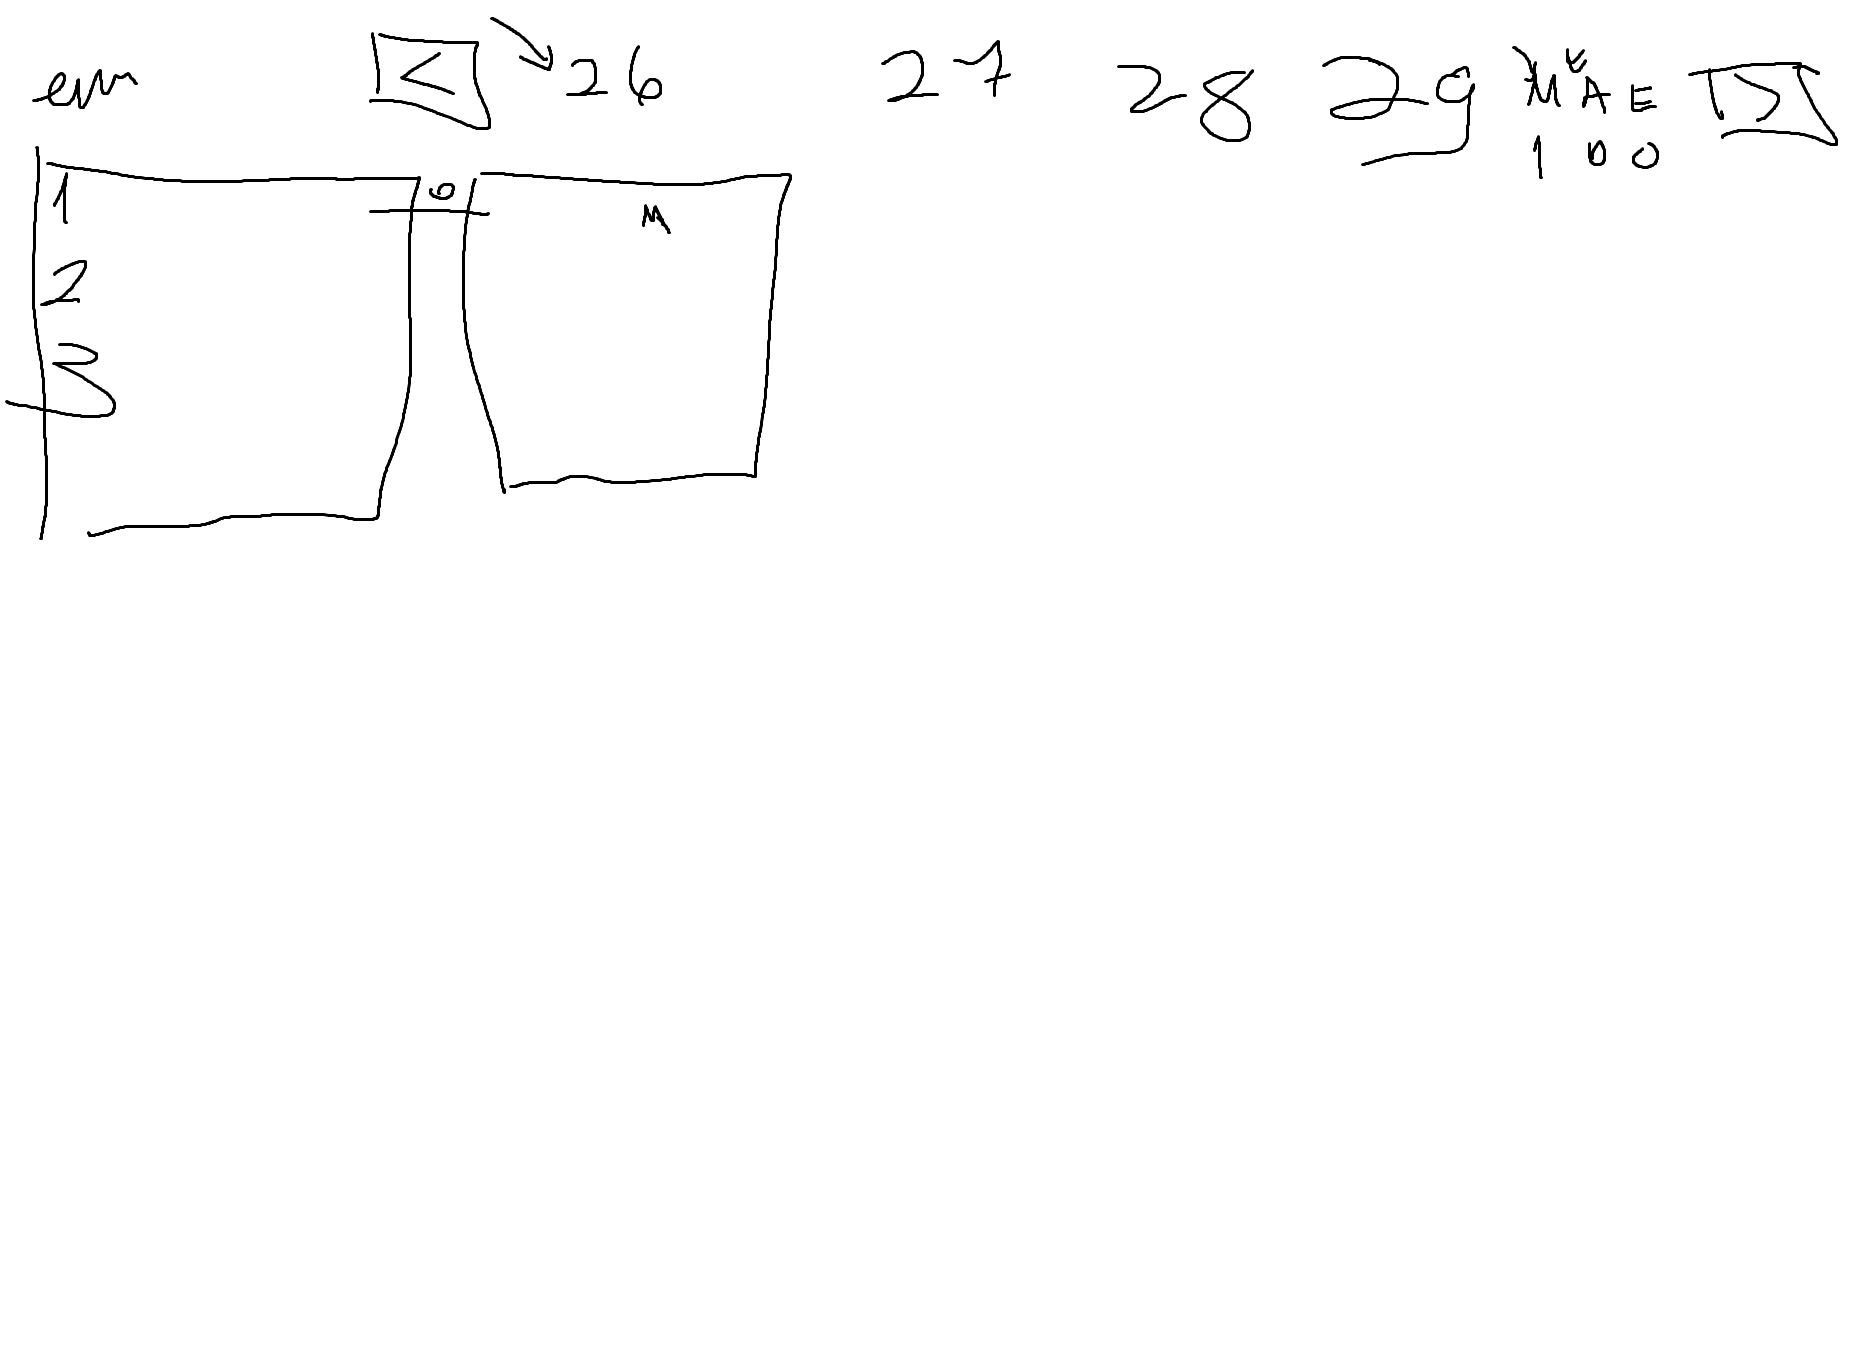 em < 26 27 28 29 M A E >
1 0 0
1
M
2
3